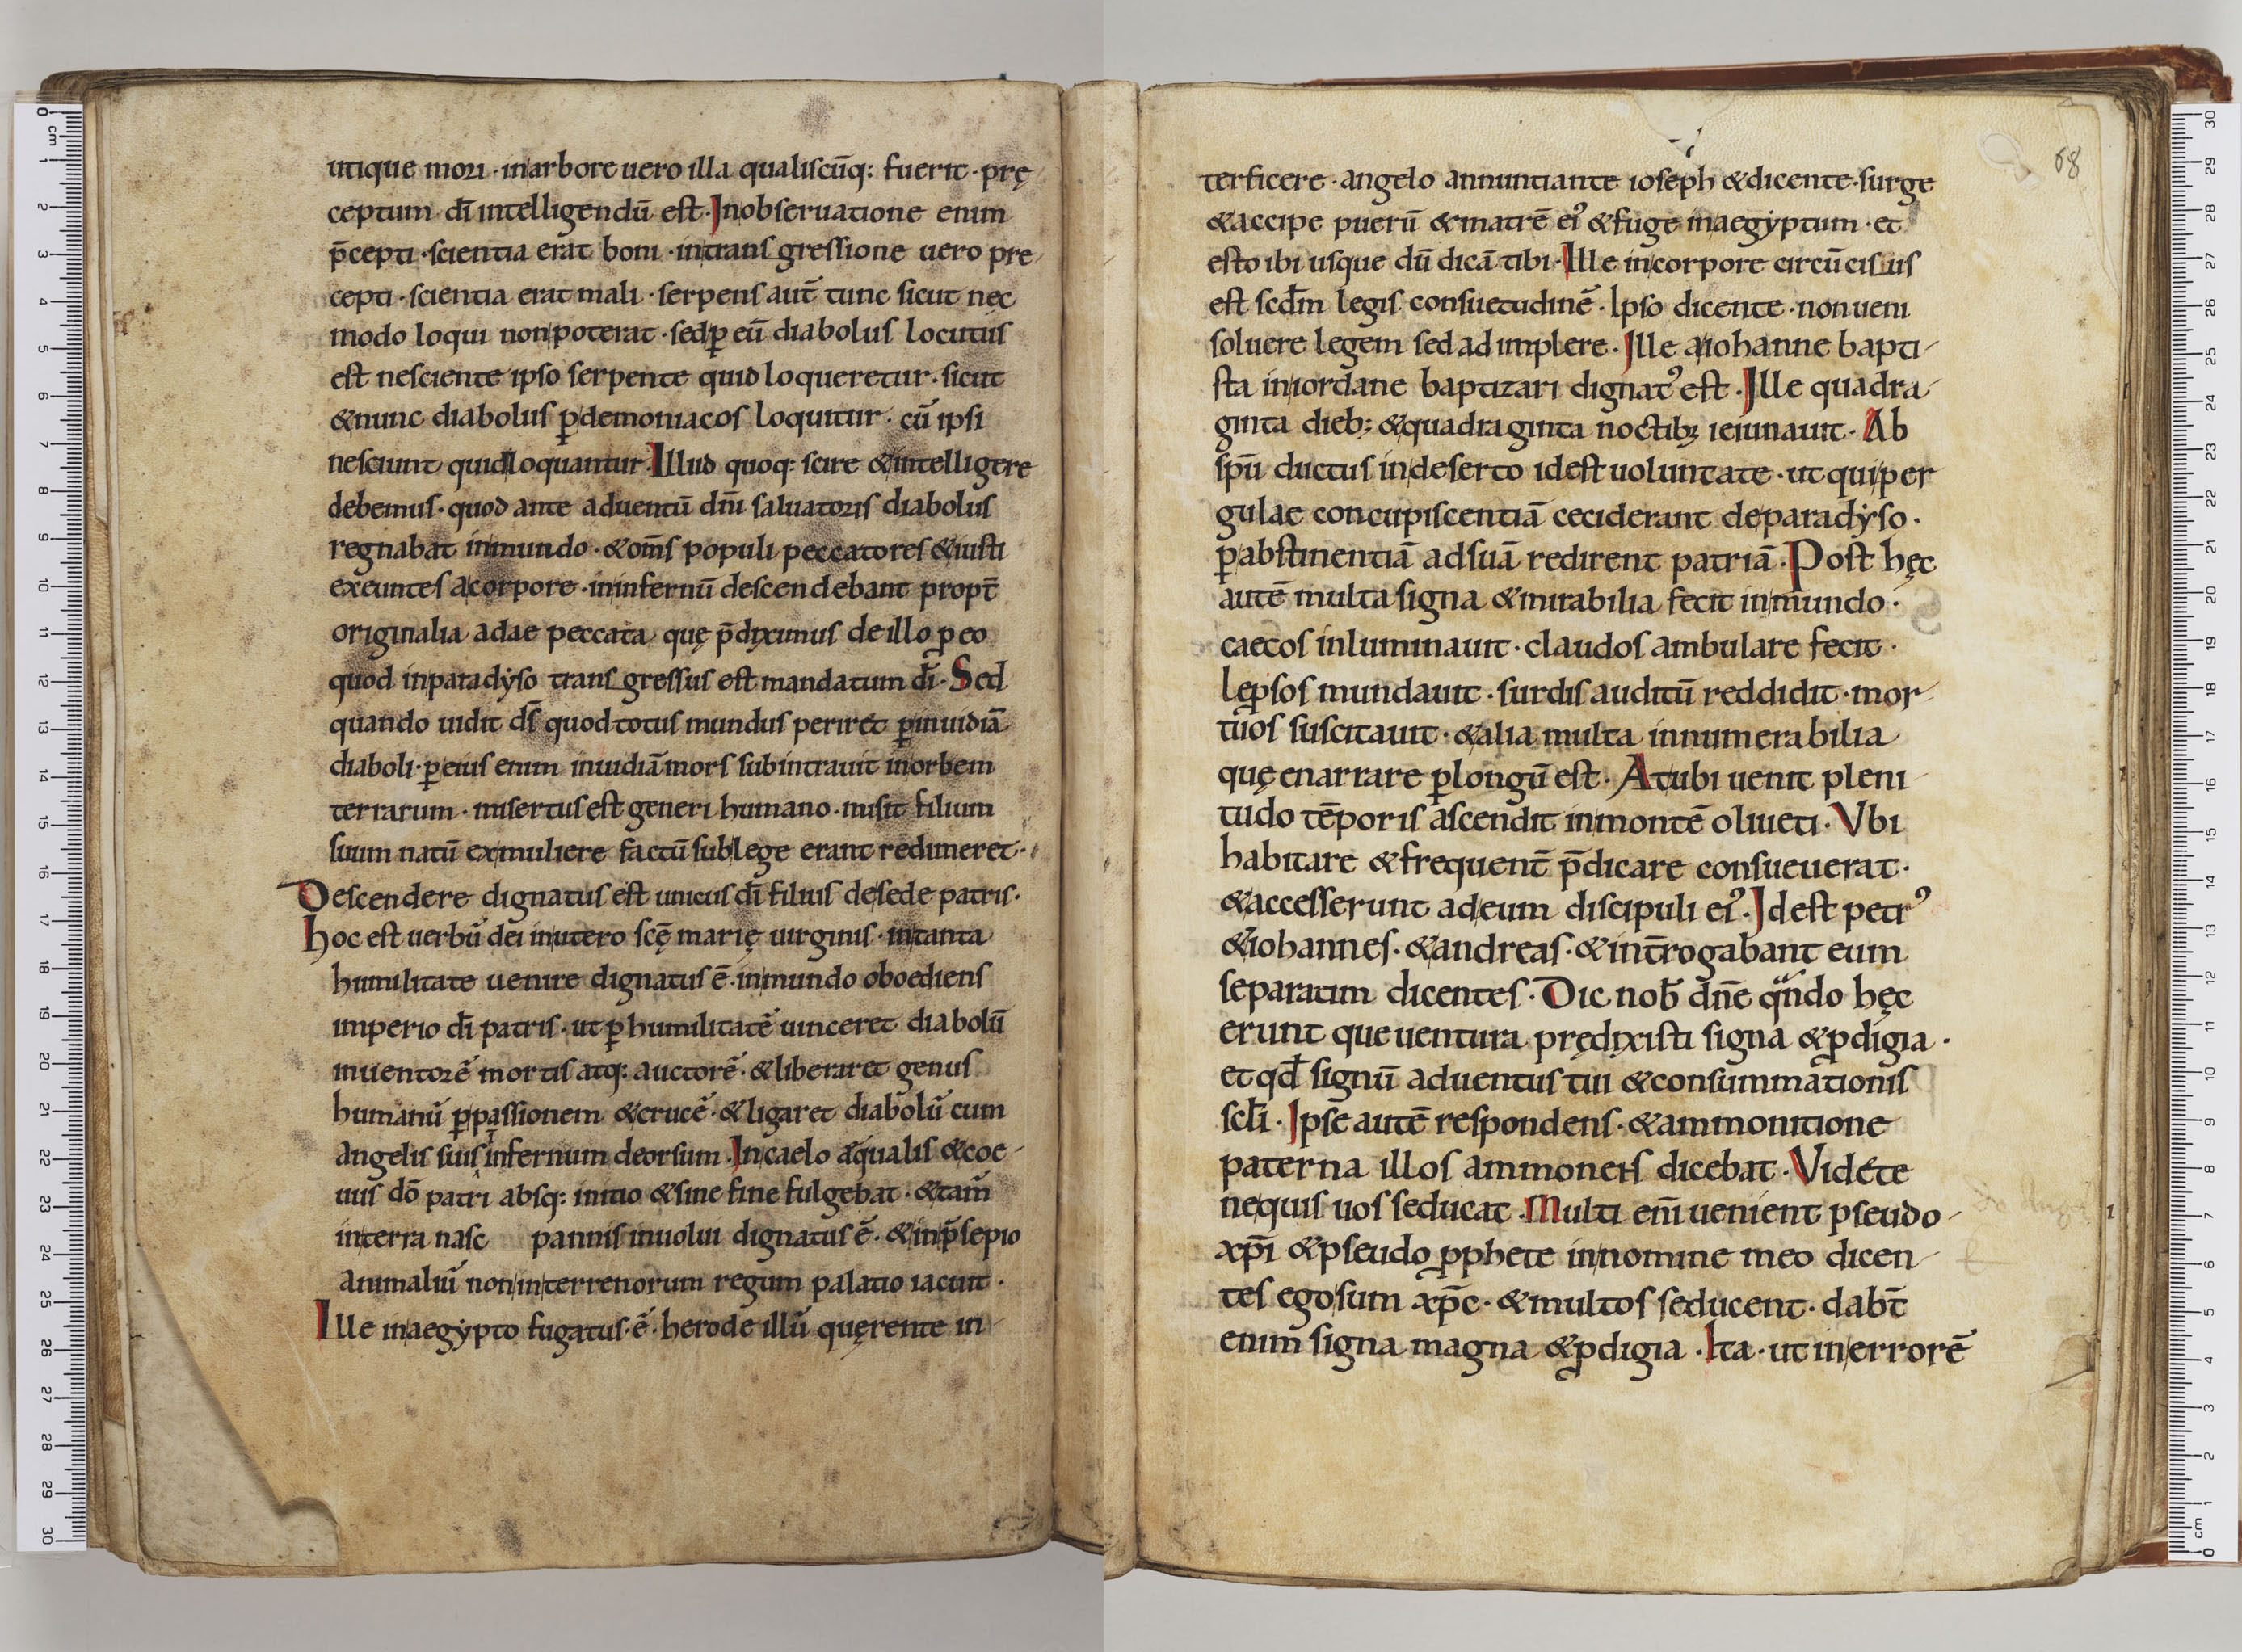 utique mori · inarbore uero illa qualiscūq: fuerit · prę
ceptum dī intelligendū est · Inobseruatione enim
p̄cepti · scientia erat boni · intrans gressione uero pre
cepti · scientia erat mali · serpens aut̄ tunc sicut nec
modo loqui non poterat · sed ꝑ eū diabolus locutus
est nesciente ipso serpente quid loqueretur · sicut
&nunc diabolus ꝑdemoniacos loquitur · cū ipsi
nesciunt quid loquantur · Illud quoq: scire &intelligere
debemus · quod ante aduentū dn̄i saluatoris diabolus
regnabat inmundo · &om̄s populi peccatores &iusti
exeuntes acorpore · ininfernū descendebant propt̄
originalia adae peccata quę p̄diximus de illo ꝑ eo
quod inparadyso trans gressus est mandatum dī · Sed
quando uidit ds̄ quod totus mundus periret ꝑinuidiā
diaboli · ꝑ eius enim inuidiā mors subintrauit inorbem
terrarum · misertus est generi humano · misit filium
suum natū exmuliere factū sublege erant redimeret ·
Descendere dignatus est unicus dī filius desede patris ·
hoc est uerbū dei inutero scę̄ marię uirginis · intanta
humilitate uenire dignatus ē · inmundo oboediens
imperio dī patris · ut ꝑ humilitatē uinceret diabolū
inuentorē mortis atq: auctorē · &liberaret genus
humanū ꝑpassionem &crucē · &ligaret diabolū cum
angelis suis infernum deorsum · Incaelo aequalis &coe
uus dō patri absq: initio &sine fine fulgebat · &tam̄
interra nasc pannis inuolui dignatus ē · &inp̄sepio
animaliū non interrenorum regum palatio iacuit ·
Ille inaegypto fugatus · ē · herode illū quęrente in
68
terficere · angelo annuntiante ioseph &dicente · surge
&accipe puerū &matrē eiꝰ &fuge inaegyptum · et
esto ibi usque dū dicā tibi · Ille incorpore circūcisus
est scdm̄ legis consuetudinē · Ipso dicente · non ueni
soluere legem sed adimplere · Ille aiohanne bapti
sta iniordane baptizari dignatꝰ est · Ille quadra
ginta dieb; &quadraginta noctibꝫ ieiunauit · Ab
spū ductus indeserto idest uoluntate · ut qui per
gulae concupiscentiā ceciderant deparadyso ·
ꝑabstinentiā adsuā redirent patriā · Post hęc
autē multa signa &mirabilia fecit inmundo ·
caecos inluminauit · claudos ambulare fecit ·
leꝓsos mundauit · surdis auditū reddidit · mor
tuos suscitauit · &alia multa innumerabilia
quę enarrare ꝑlongū est · Atubi uenit pleni
tudo tēporis ascendit inmontē oliueti · Vbi
habitare &frequent̄ p̄dicare consueuerat ·
&accesserunt adeum discipuli eiꝰ · Idest petrꝰ
&iohannes · &andreas · &int̄rogabant eum
separatim dicentes · Dic nob̄ dn̄e qͣndo hęc
erunt que uentura prędixisti signa &ꝓdigia ·
et qd̄ signū aduentus tui &consummationis
scl̄i · Ipse autē respondens · &ammonitione
paterna illos ammonens dicebat · Videte
nequis uos seducat · Multi eni̅ uenient pseudo
xp̄i &pseudo ꝓphete innomine meo dicen
tes ego sum xp̄c · &multos seducent · dabt̄
enim signa magna &ꝓdigia · Ita · ut inerrorē